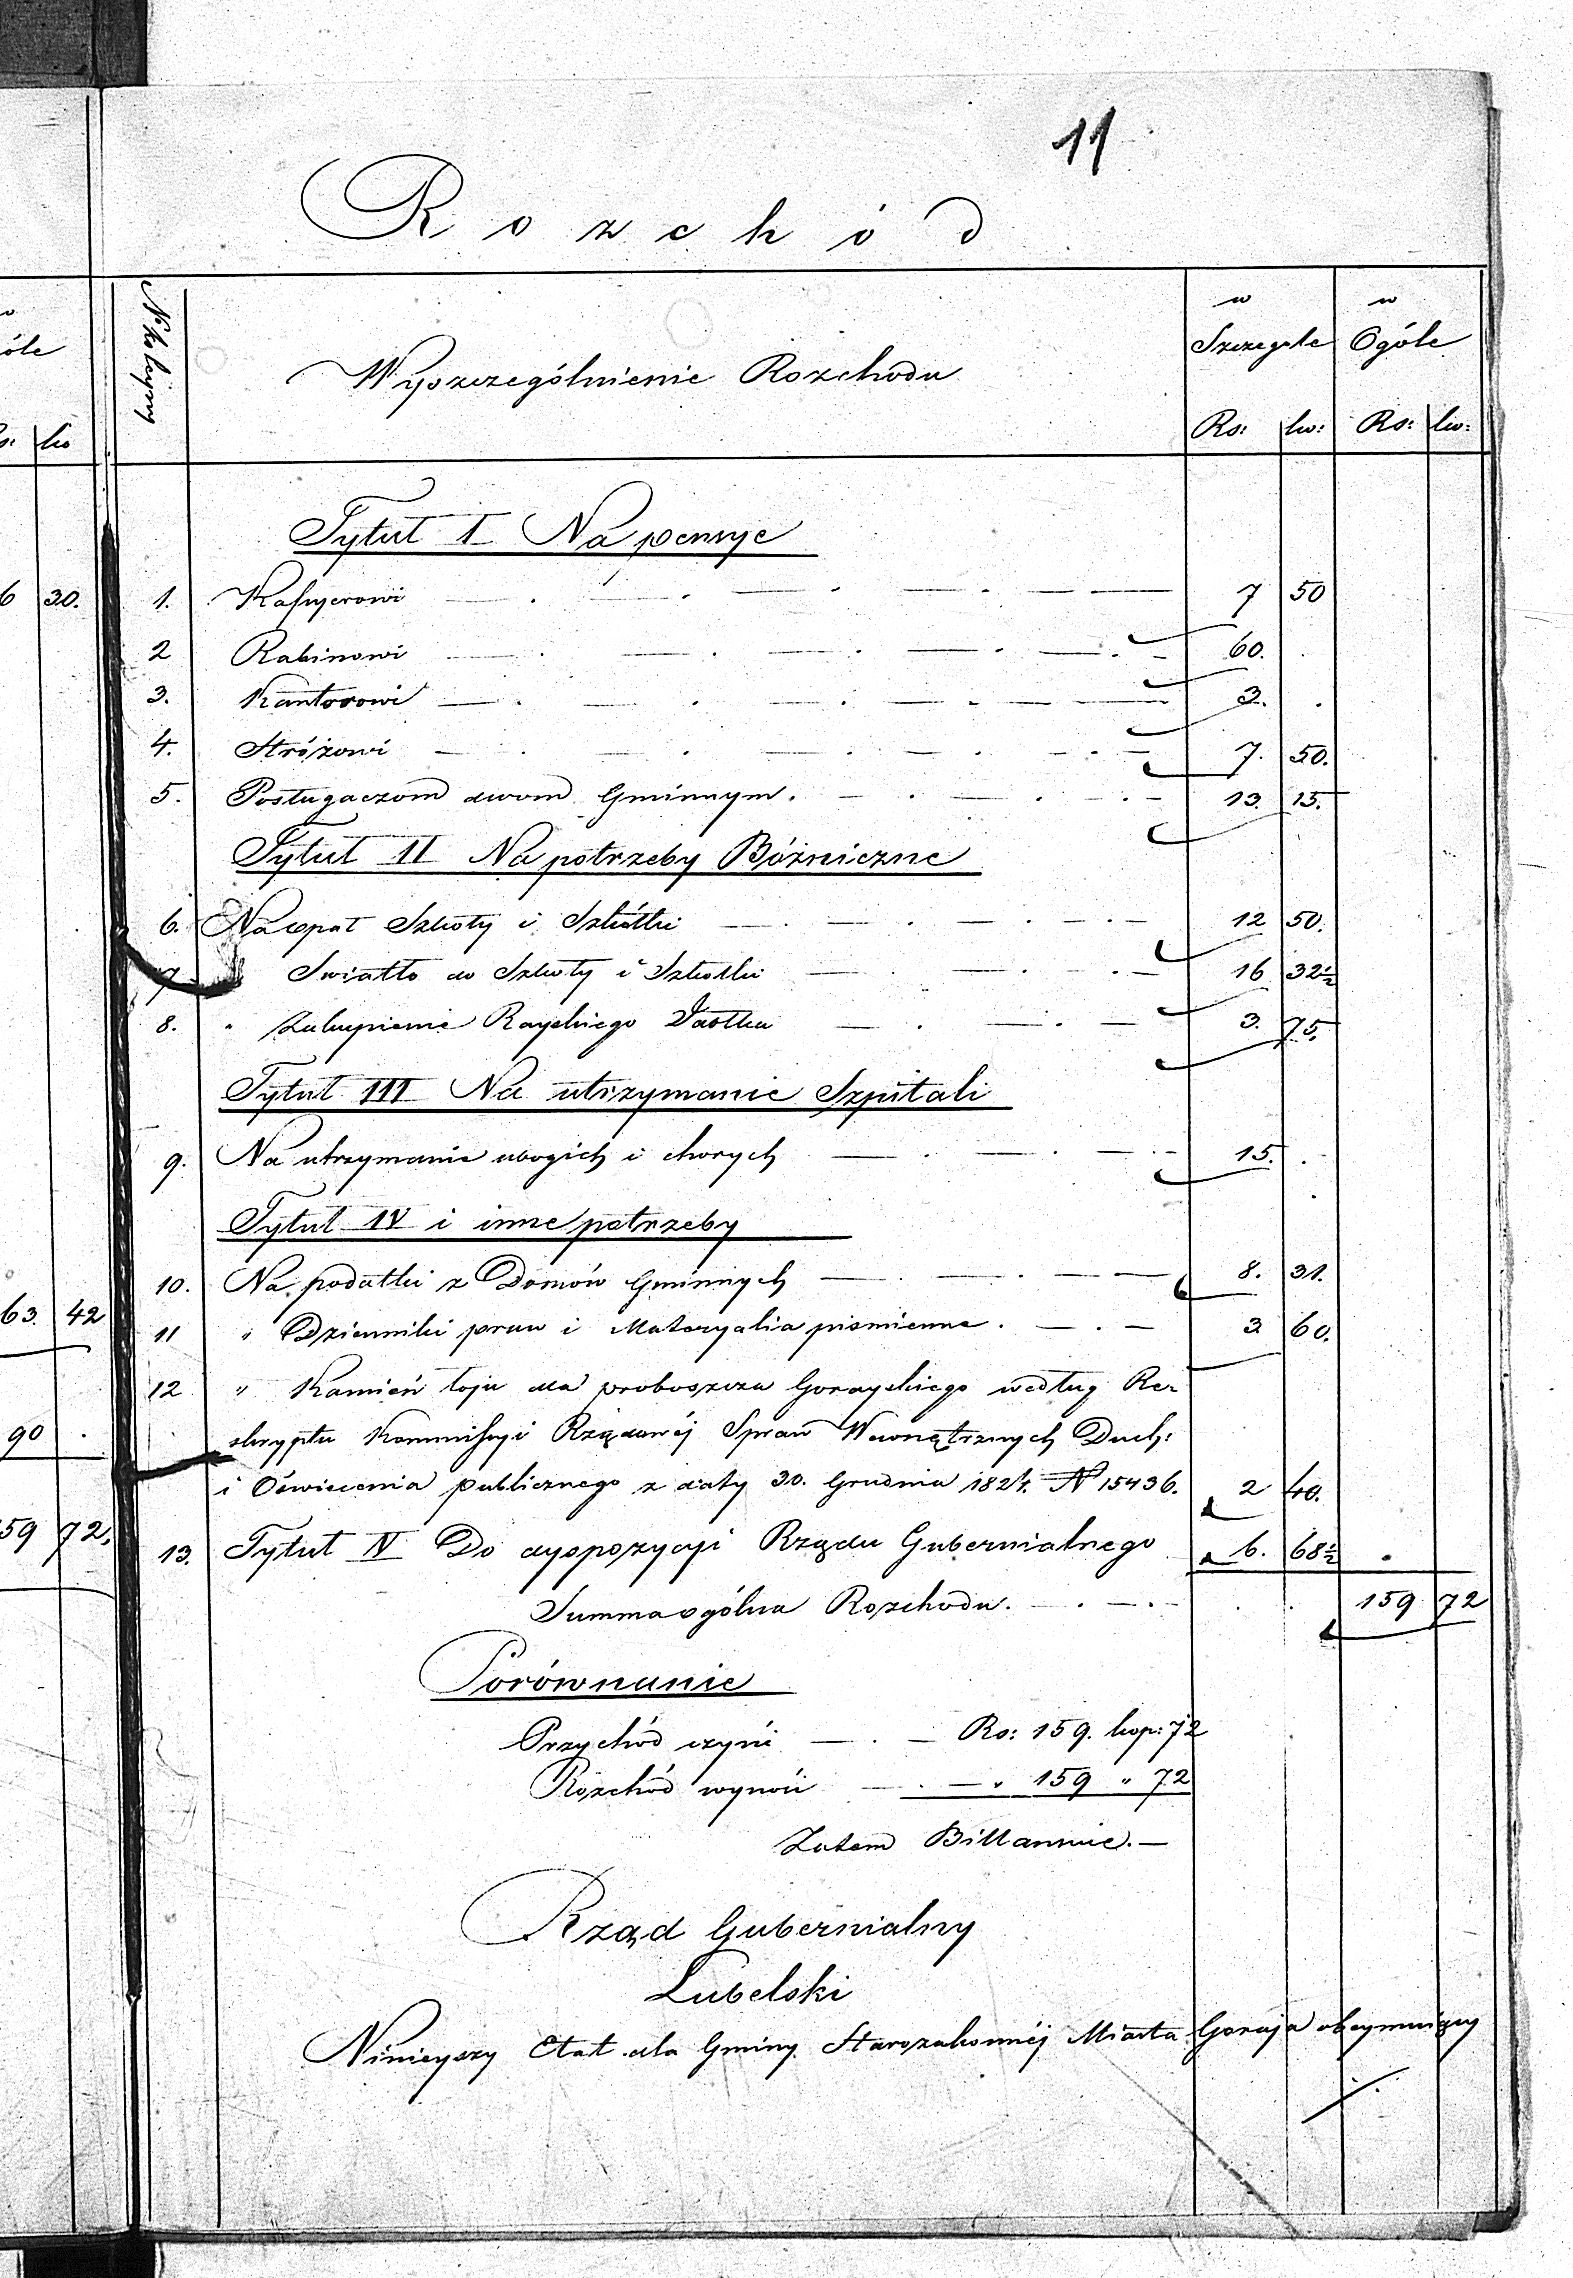 11
Rozchód
w
óle
No kolejny
Wyszczególnienie Rozchodu
w
Szczególe
w
Ogóle
s: ko
Rs: ko:
Rs: ko:
Tytuł I Na pensye
6 30.
1. Kassyerowi 7 50
2 Rabinowi 60.
3. Kantorowi 3.
4. Stróżowi 7. 50.
5. Posługaczom dwom Gminnym. 13. 15.
Tytuł II Na potrzeby Bóżniczne
6. Na opał Szkoły i Szkółki 12 50.
7 Swiatło do Szkoły i Szkółki 16 32½
8. " Zakupienie Rayskiego Jabłka 3. 75.
Tytuł III Na utrzymanie Szpitali
9. Na utrzymanie ubogich i chorych 15.
Tytuł IV i inne potrzeby
10. Na podatki z Domów Gminnych 8. 31.
63. 42
11 " Dzienniki praw i Materyalia piśmienne. 3 60.
12 " Kamień łoju dla proboszcza Gorayskiego według Re=
90
skryptu Kommissyi Rządowéj Spraw Wewnętrznych Duch:
i Oświecenia publicznego z daty 30. Grudnia 1824. N 15436. 2 40.
59 72.
13. Tytuł IV Do dyspozycyi Rządu Gubernialnego 6. 68½
Summa ogólna Rozchodu. 159 72
Porównanie
Przychód czyni Rs: 159. kop: 72
Rozchód wynosi " 159 " 72
Zatem Billannie.
Rząd Gubernialny
Lubelski
Ninieyszy Etat dla Gminy Starozakonnéj Miasta Goraja obeymuiący